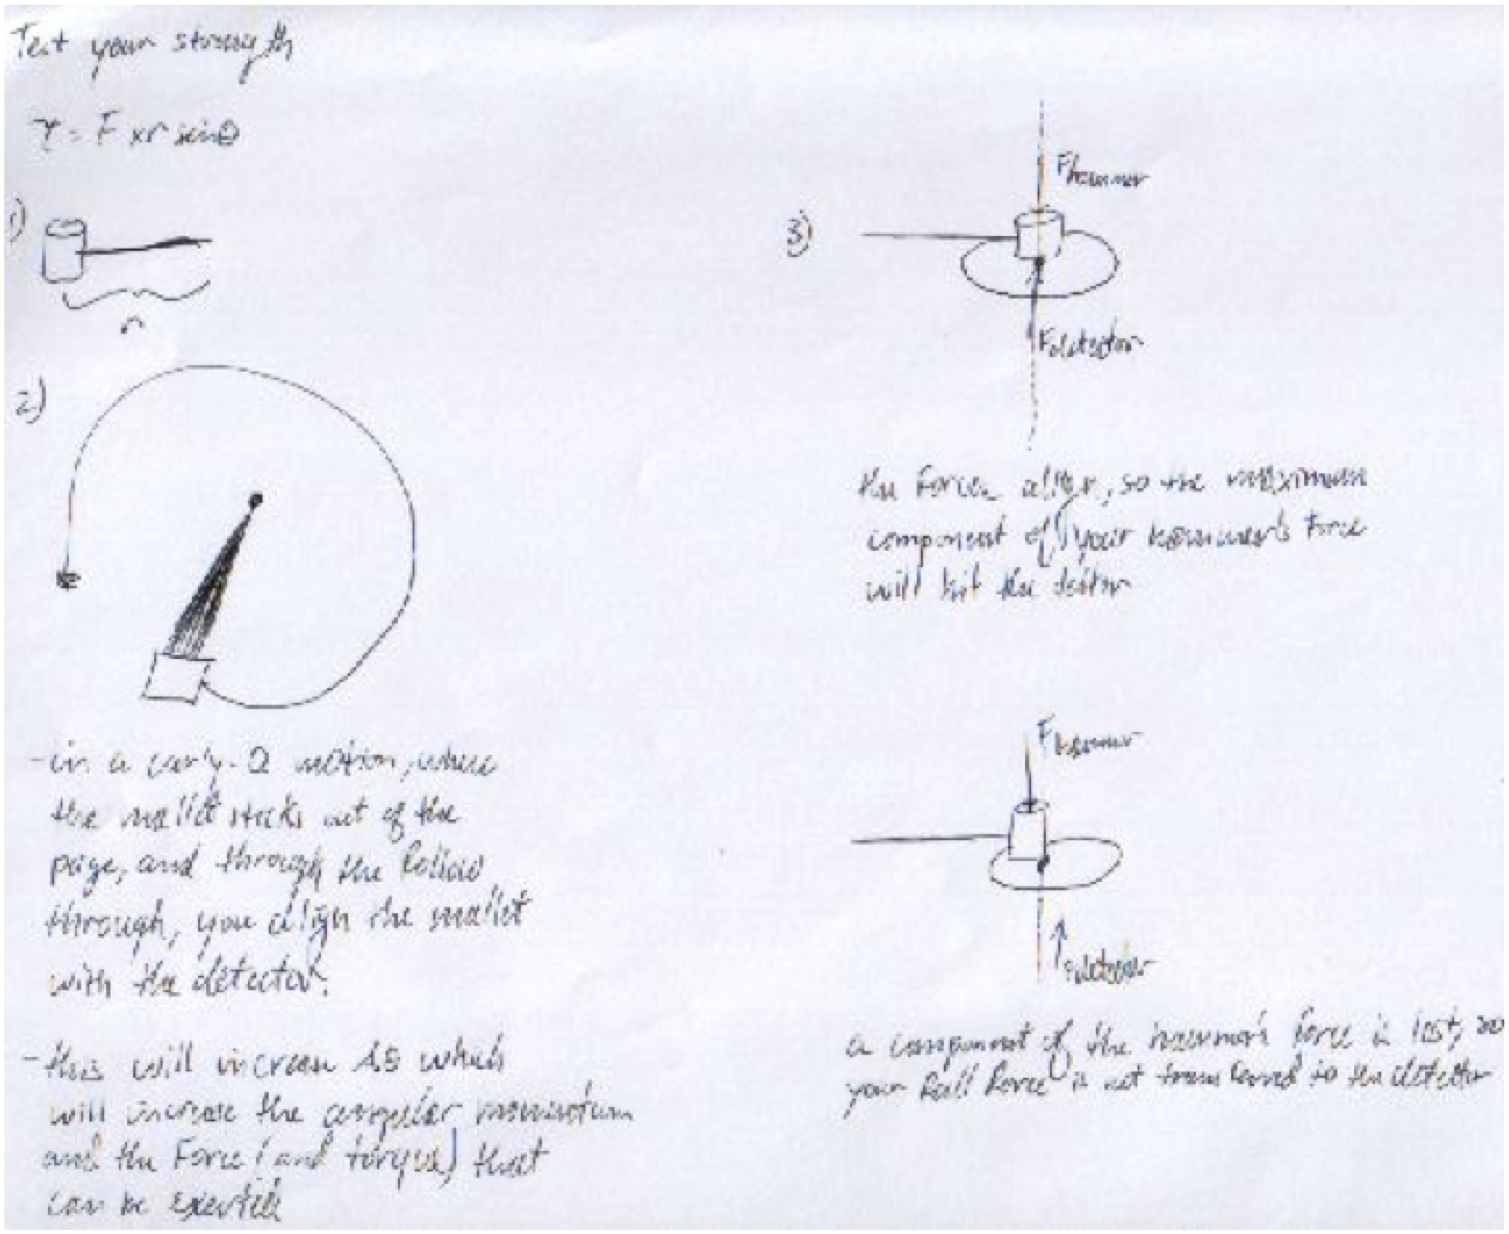 Test your strength
τ = F x r sinθ
1)
r
2)
- in a curly-Q motion, where
the mallet sticks out of the
page, and through the follow
through, you align the mallet
with the detector.
- this will increase Δθ which
will increase the angular momentum
and the Force (and torque) that
can be exerted
3)
Fhammer
Fdetector
the Forces align, so the maximum
component of your hammer's force
will hit the
Fhammer
Fdetector
a component of the hammer's force is lost, so
your full force is not transferred to the detector